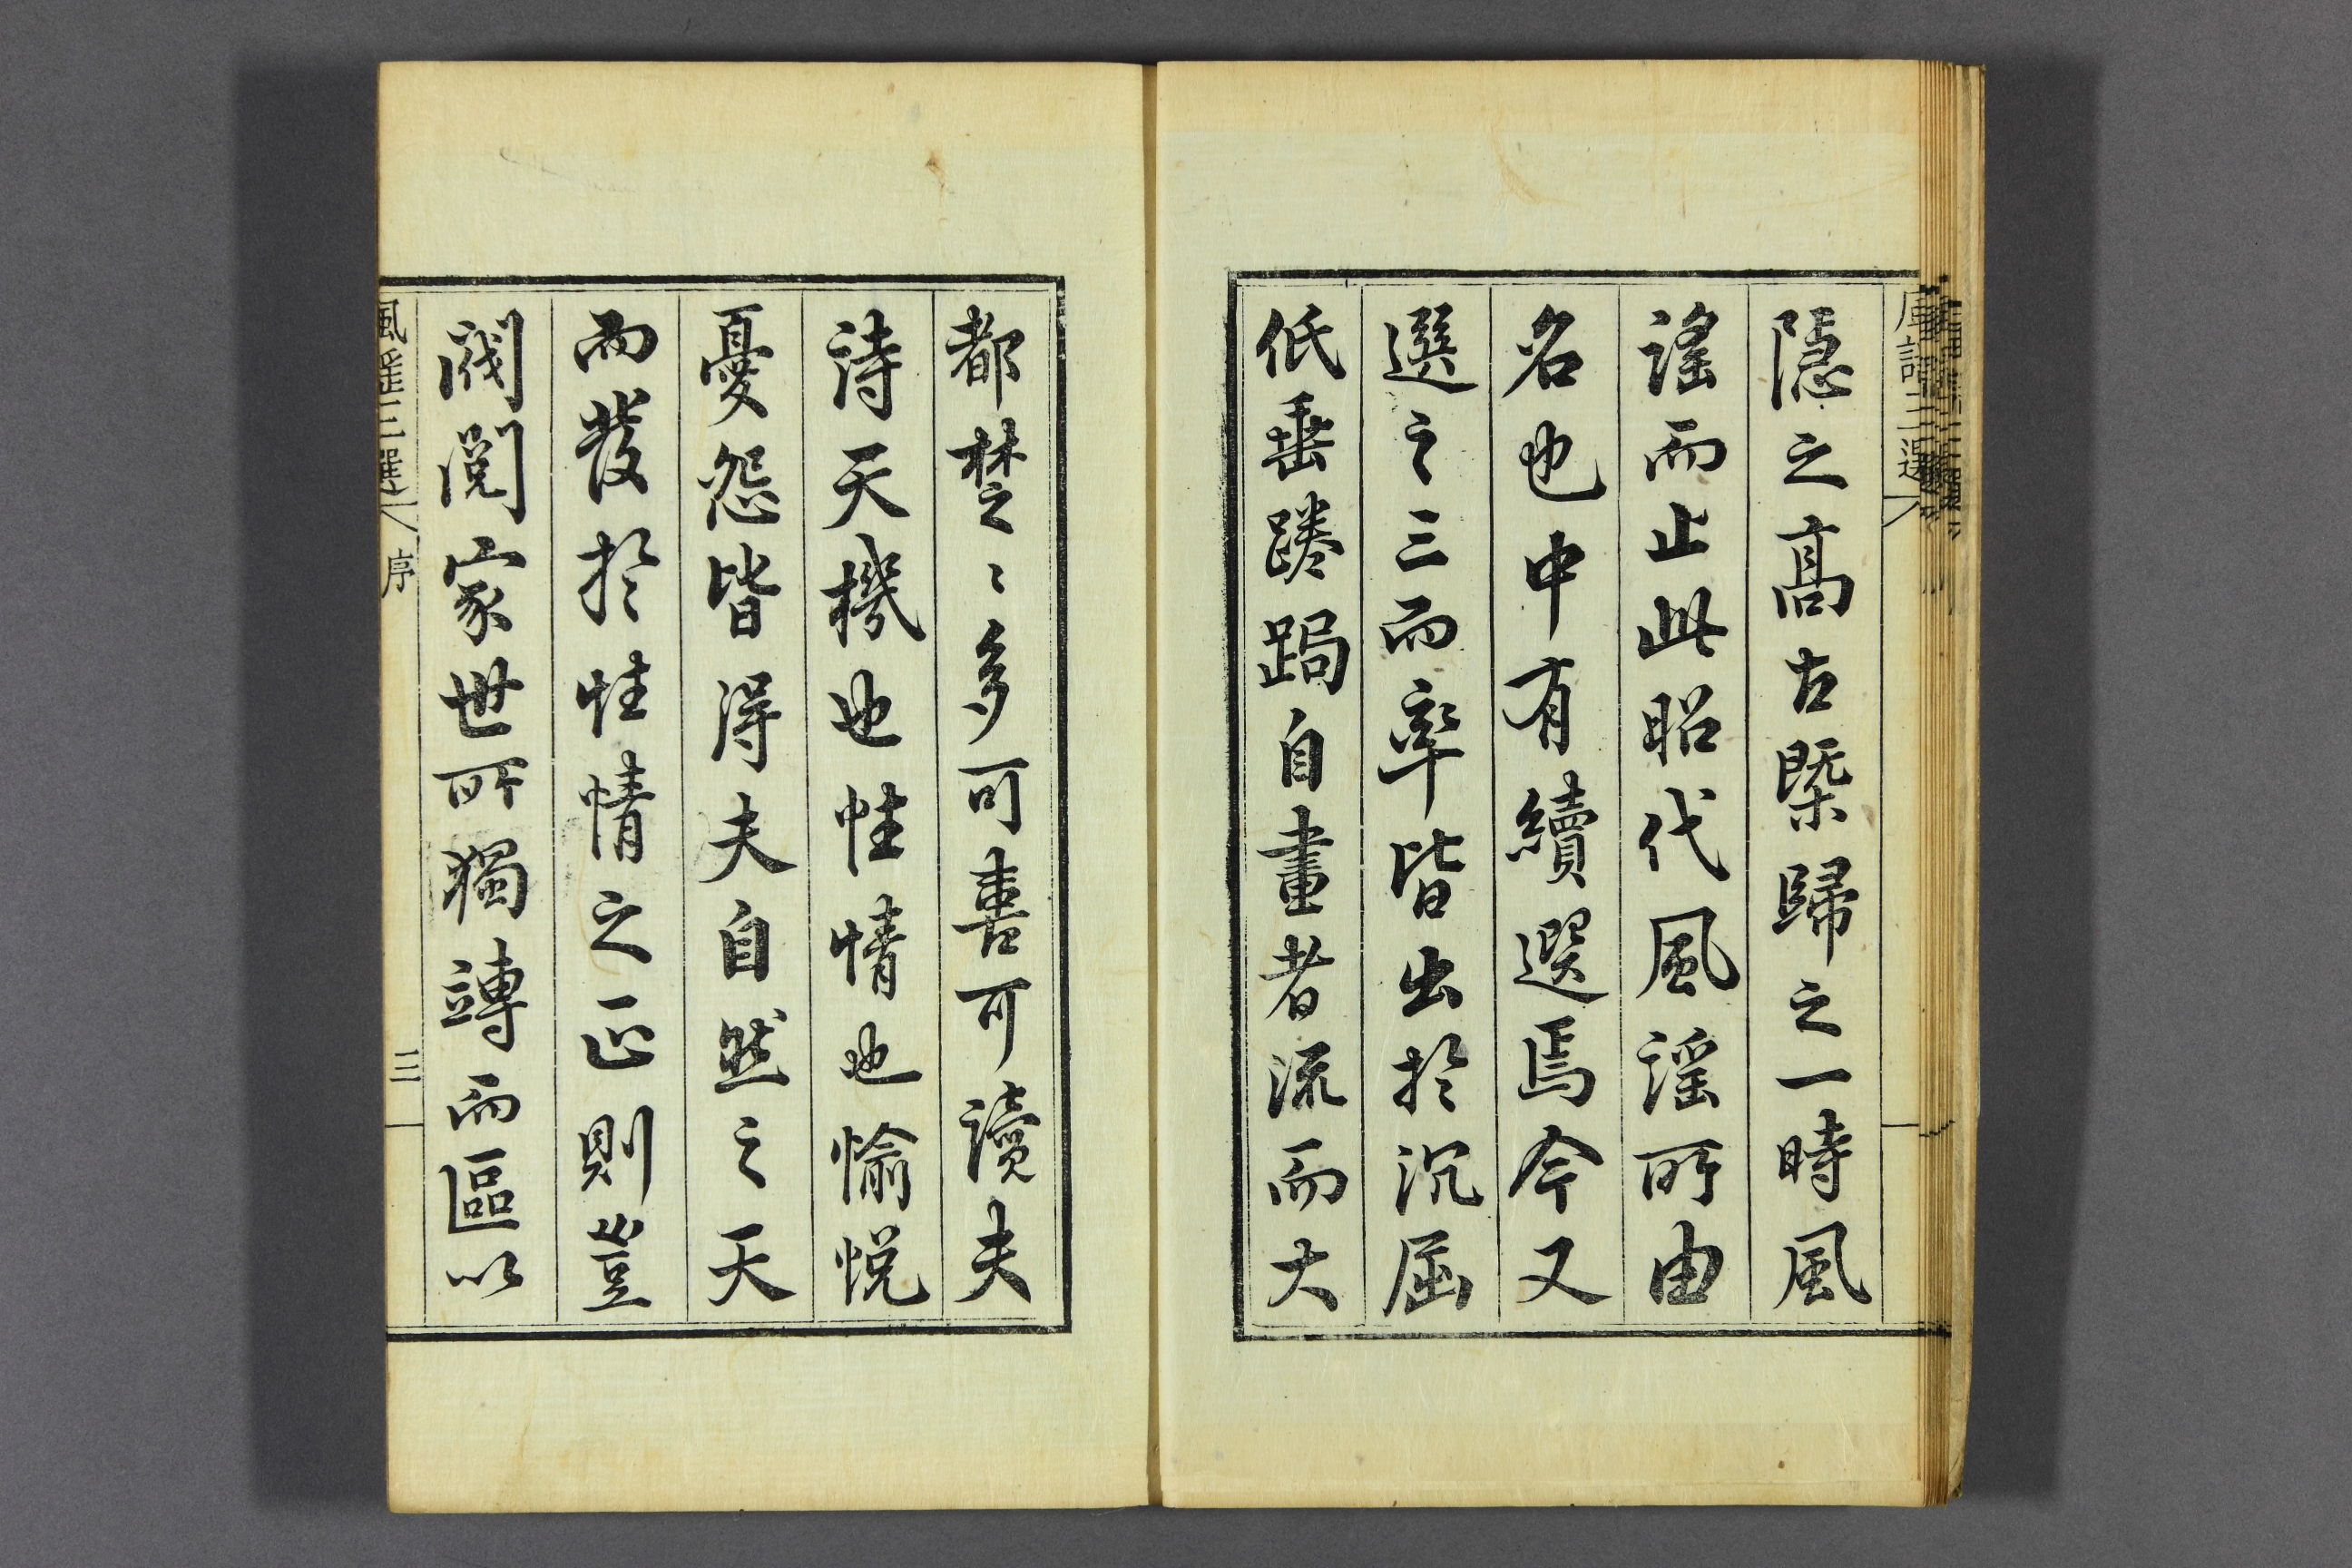 隱之高古槩歸之一時風
謠而止此昭代風謠所由
名也中有續選焉今又
選之三而率皆出於沉屈
低垂踡跼自畫者流而大
都楚〻多可喜可讀夫
詩天機也性情也愉悅
憂怨皆得夫自然之天
而發於性情之正則豈
閥閱家世所獨專而區以
風謠三選 序 三